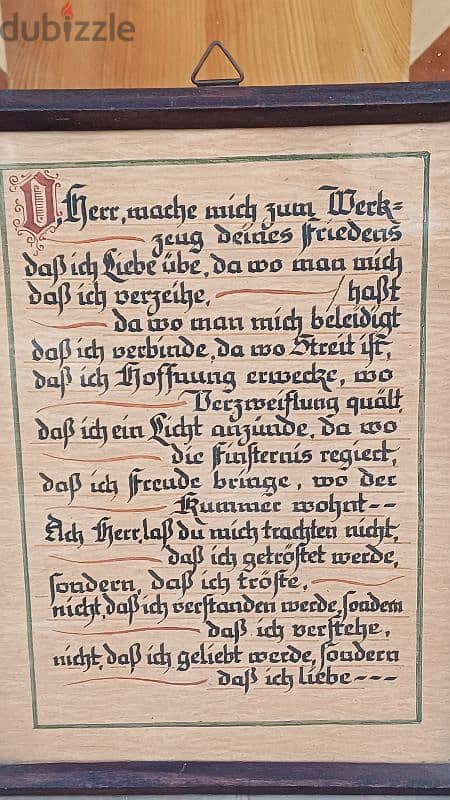 dubizzle
O, Herr, mache mich zum Werk=
zeug deines Friedens
daß ich Liebe übe, da wo man mich
daß ich verzeihe, / haßt
da wo man mich beleidigt
daß ich verbinde, da wo Streit ist,
daß ich Hoffnung erwecke, wo
Verzweiflung quält,
daß ich ein Licht anzünde, da wo
die Finsternis regiert,
daß ich Freude bringe, wo der
Kummer wohnt--
Ach Herr, laß du mich trachten nicht,
daß ich getröstet werde,
sondern, daß ich tröste,
nicht, daß ich verstanden werde, sondern
daß ich verstehe,
nicht, daß ich geliebt werde, sondern
daß ich liebe---